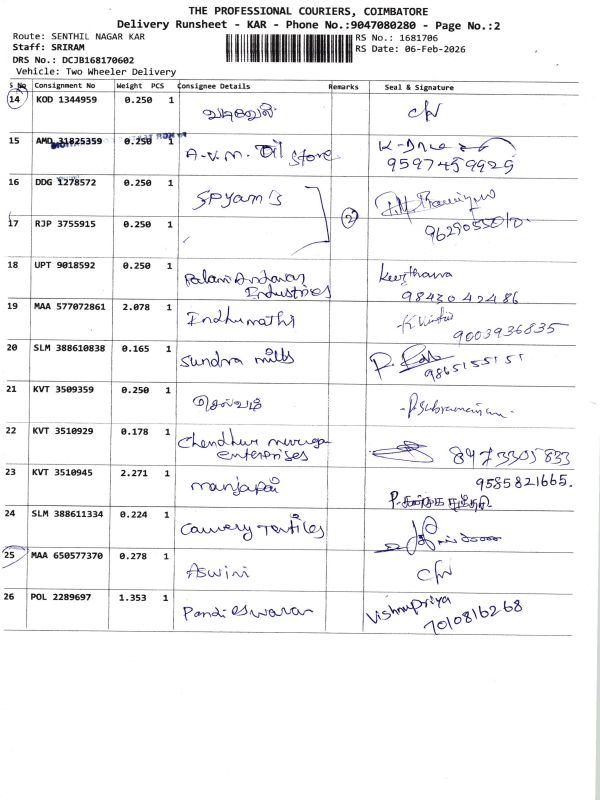 THE PROFESSIONAL COURIERS, COIMBATORE
Delivery Runsheet - KAR - Phone No.:9047080280 - Page No.:2
Route: SENTHIL NAGAR KAR RS No.: 1681706
Staff: SRIRAM RS Date: 06-Feb-2026
DRS No.: DCJB168170602
Vehicle: Two Wheeler Delivery
S No Consignment No Weight PCS Consignee Details Remarks Seal & Signature
14 KOD 1344959 0.250 1 வடிவேல்
15 AMD 31825359 0.250 1 A.V.M. Oil Store
9597459925
16 DDG 1278572 0.250 1 SPyam's
2
17 RJP 3755915 0.250 1
18 UPT 9018592 0.250 1 Palani Andavar Keerthana
Industries 98430 42486
19 MAA 577072861 2.078 1 Indhumathi
9003936835
20 SLM 388610838 0.165 1 Sundra mills
9865155151
21 KVT 3509359 0.250 1 செல்வி P.Subramaniyam
22 KVT 3510929 0.178 1 Chendhur muruga
enterprises 8973305833
23 KVT 3510945 2.271 1 9585821665.
24 SLM 388611334 0.224 1 Cauvery Textiles
25 MAA 650577370 0.278 1 Aswini
26 POL 2289697 1.353 1 Pandi eswaran Vishnupriya
7010816268